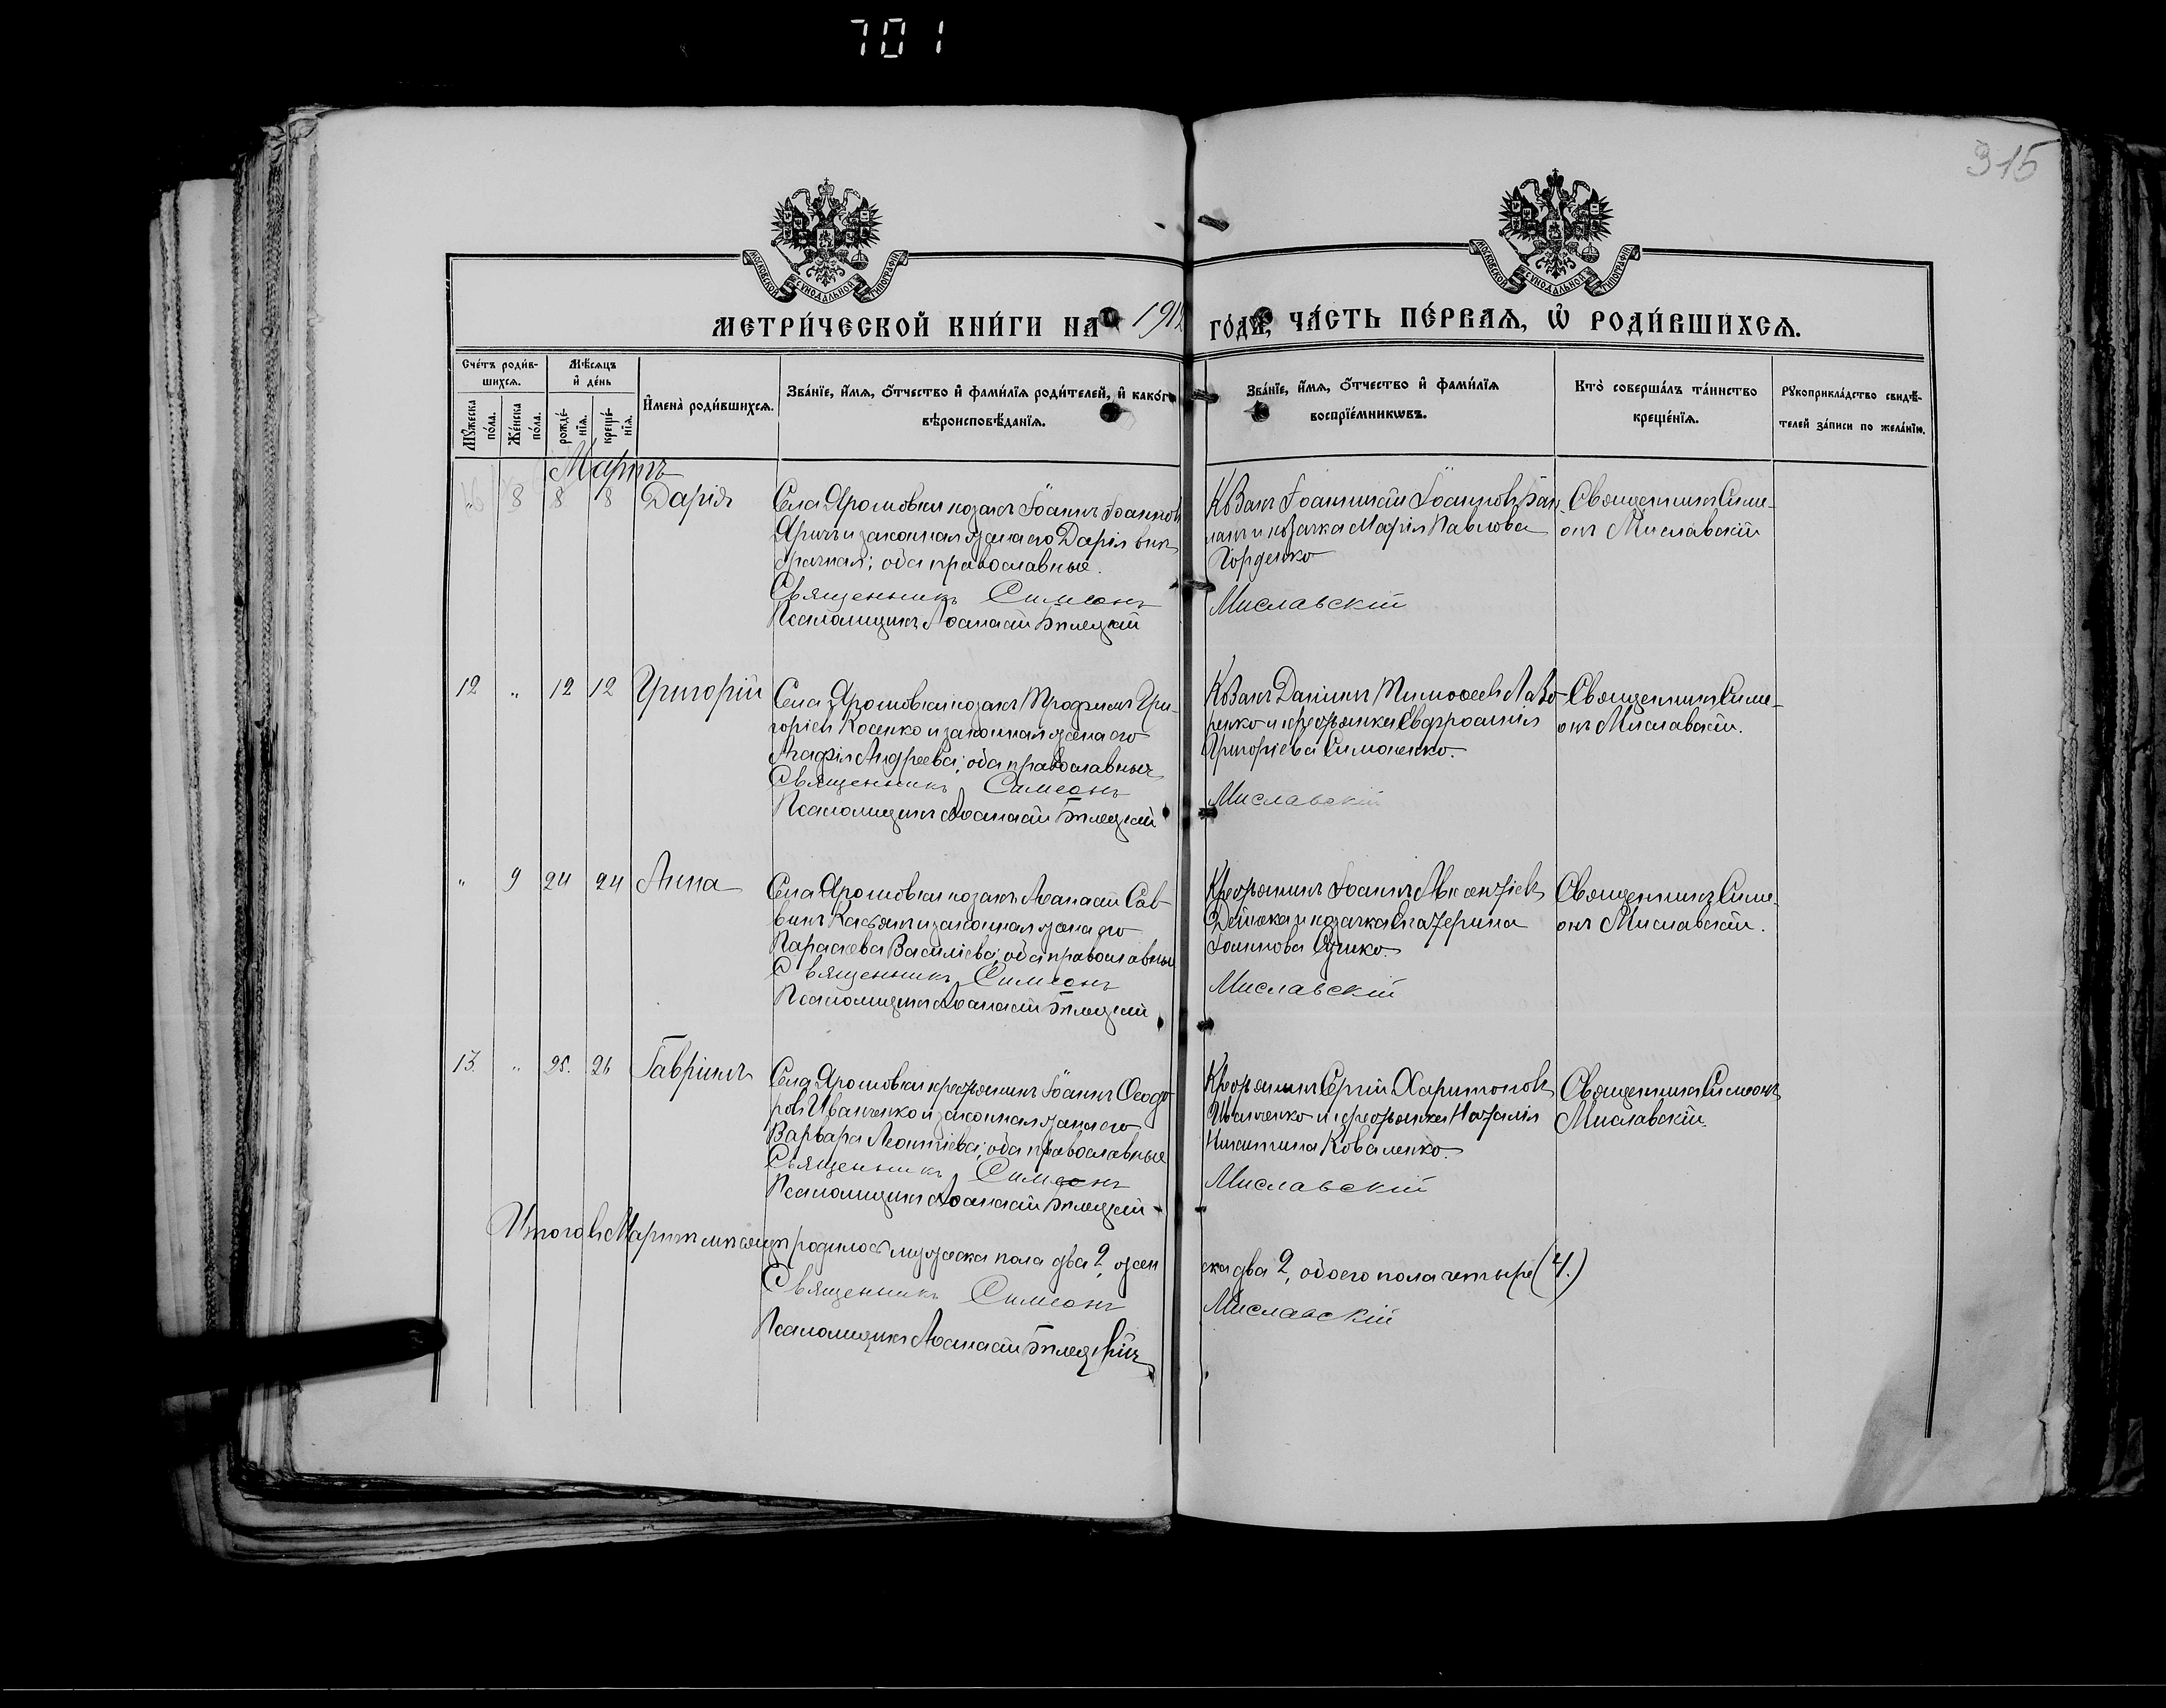 701
315
МОСКОВСКОЙ СѴНОДАЛЬНОЙ ТИПОГРАФІИ
МОСКОВСКОЙ СѴНОДАЛЬНОЙ ТИПОГРАФІИ
МЕТРИ́ЧЕСКОЙ КНИ́ГИ НА 191 ГО́ДЪ, ЧА́СТЬ ПЕ́РВАЯ, Ѡ҆ РОДИ́ВШИХСЯ.
Сче́тъ роди́в-
шихся.
Мꙋ́жеска по́ла.
Же́нска по́ла.
Мѣ́сяцъ
и҆ де́нь
рожде́-
нїя.
креще́-
нїя.
И҆мена̀ роди́вшихся.
Зва́нїе, и҆́мя, ѻ҆́тчество и҆ фами́лїя роди́телей, и҆ како́гѡ
вѣроисповѣ́данїя.
Зва́нїе, и҆́мя, ѻ҆́тчество и҆ фами́лїя
воспрїе́мникѡвъ.
Кто̀ соверша́лъ та́инство
креще́нїя.
Рꙋкоприкла́дство свидѣ́-
телей за́писи по жела́нїю.
Мартъ
" 8 8 8 Дарія
Села Ярошовки козакъ Іоаннъ Іоанновъ
и законная жена его Дарія
; оба православные.
Священникъ Симеонъ
Псаломщикъ Аѳанасій Бѣлецкій
Козакъ Іоанникій Іоанновъ
и козачка Марія Павлова
Гордѣнко
Миславскій
Священникъ Симе-
онъ Миславскій
12 " 12 12 Григорій
Села Ярошовки козакъ Трофимъ Гри-
горіевъ Косенко и законная жена его
Агафія Андреева; оба православные
Священникъ Симеонъ
Псаломщикъ Аѳанасій Бѣлецкій
Козакъ Даніилъ Тимоѳеевъ
ренко и крестьянка Евфросинія
Григоріева Симоненко.
Миславскій
Священникъ Симе-
онъ Миславскій.
" 9 24 24 Анна
Села Ярошовки козакъ Аѳанасій Сав-
винъ Касьянъ и законная жена его
Параскева Василіева; оба православные
Священникъ Симеонъ
Псаломщикъ Аѳанасій Бѣлецкій
Крестьянинъ Іоаннъ Авксентіевъ
и козачка Екатерина
Іоаннова
Миславскій
Священникъ Симе-
онъ Миславскій.
13. " 25. 26 Гавріилъ
Села Ярошовки крестьянинъ Іоаннъ Ѳеодо-
ровъ Иванченко и законная жена его
Варвара Леонтіева; оба православные
Священникъ Симеонъ
Псаломщикъ Аѳанасій Бѣлецкій
Крестьянинъ Сергій Харитоновъ
Иванченко и крестьянка Наталія
Никитина Коваленко.
Миславскій
Священникъ Симеонъ
Миславскій.
Итого въ Мартѣ мѣсяцѣ родилось мужеска пола два 2, жен
ска два 2, обоего пола четыре (4.)
Священникъ Симеонъ
Миславскій
Псаломщикъ Аѳанасій Бѣлецкій